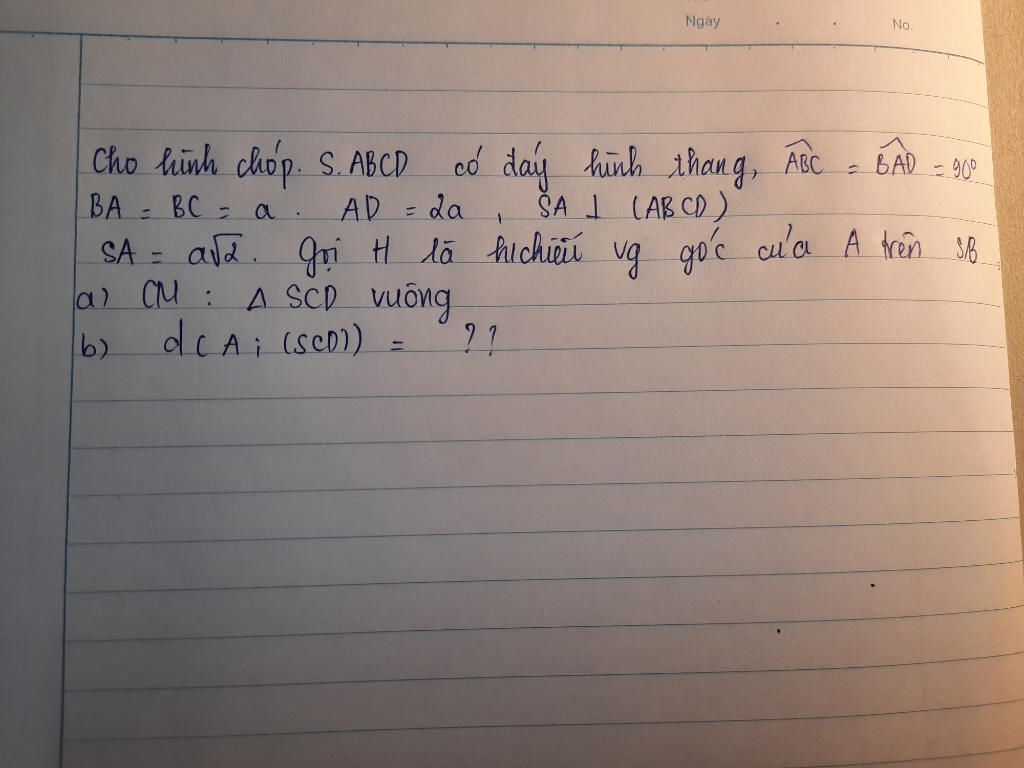 Ngày . . No.
Cho hình chóp. S.ABCD có đáy hình thang, ABC = BAD = 90°
BA = BC = a . AD = 2a , SA ⊥ (ABCD)
SA = a√2. Gọi H là hìchiếu vg góc của A trên SB
a) CM : Δ SCD vuông
b) d(A; (SCD)) = ??